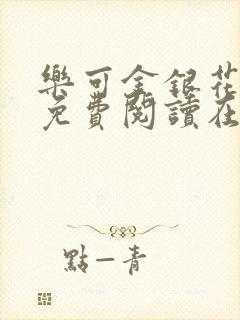 樂可金銀花
免費閱讀在
點一青